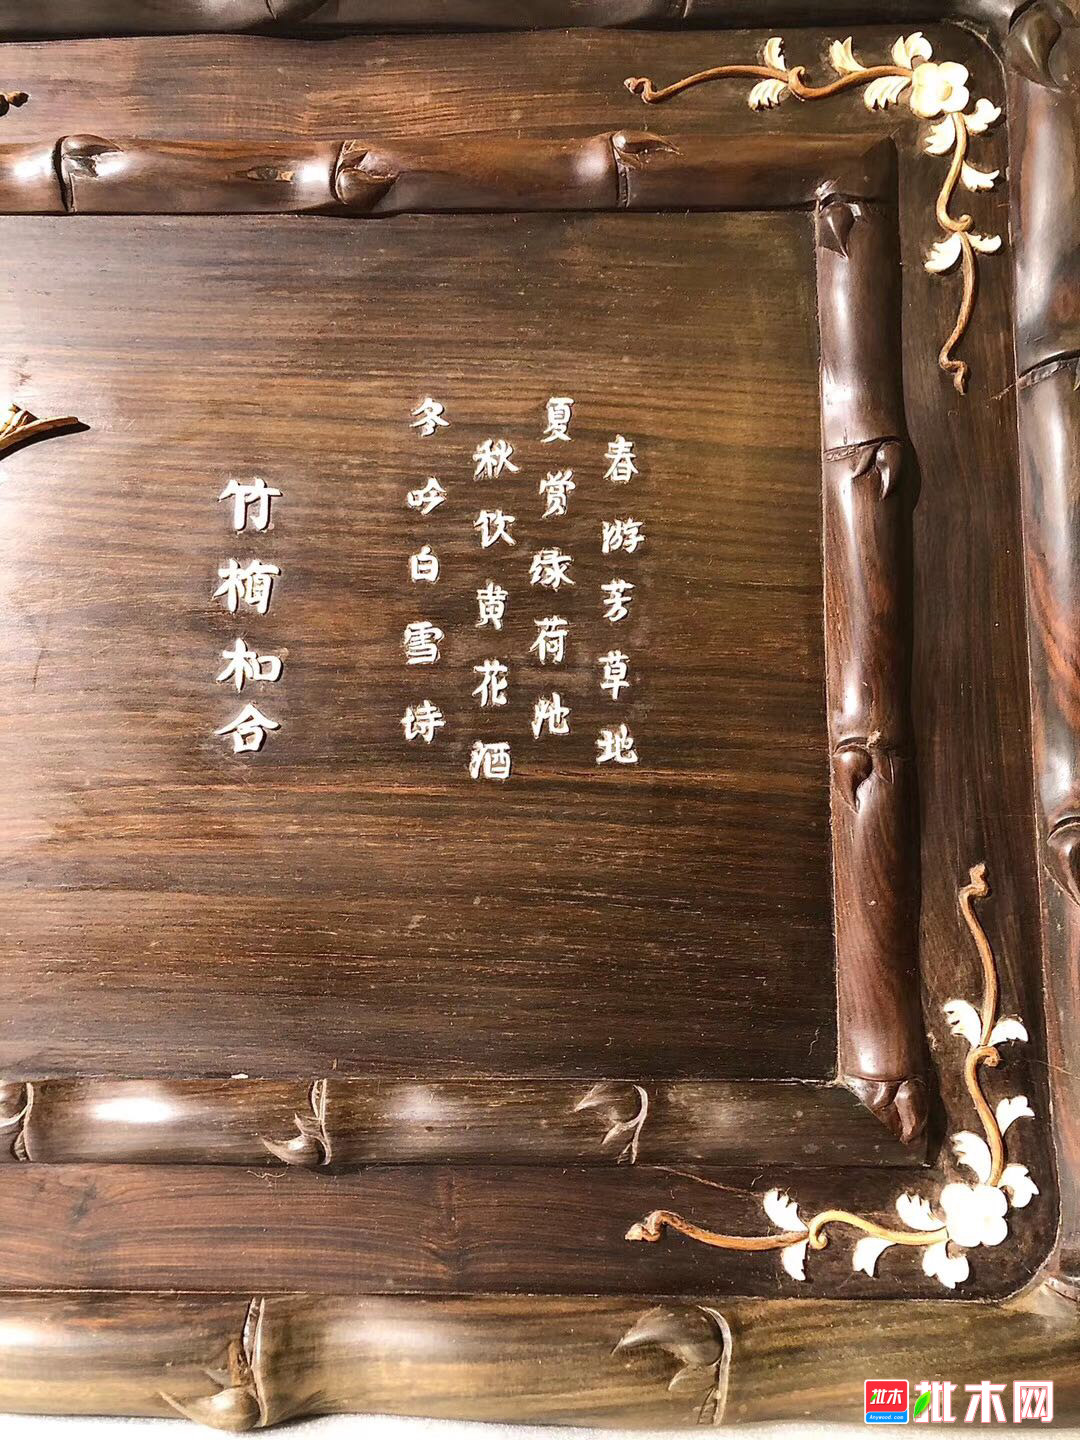 春游芳草地
夏赏绿荷池
秋饮黄花酒
冬吟白雪诗
竹梅和合
批木
Anywood.com
批木网